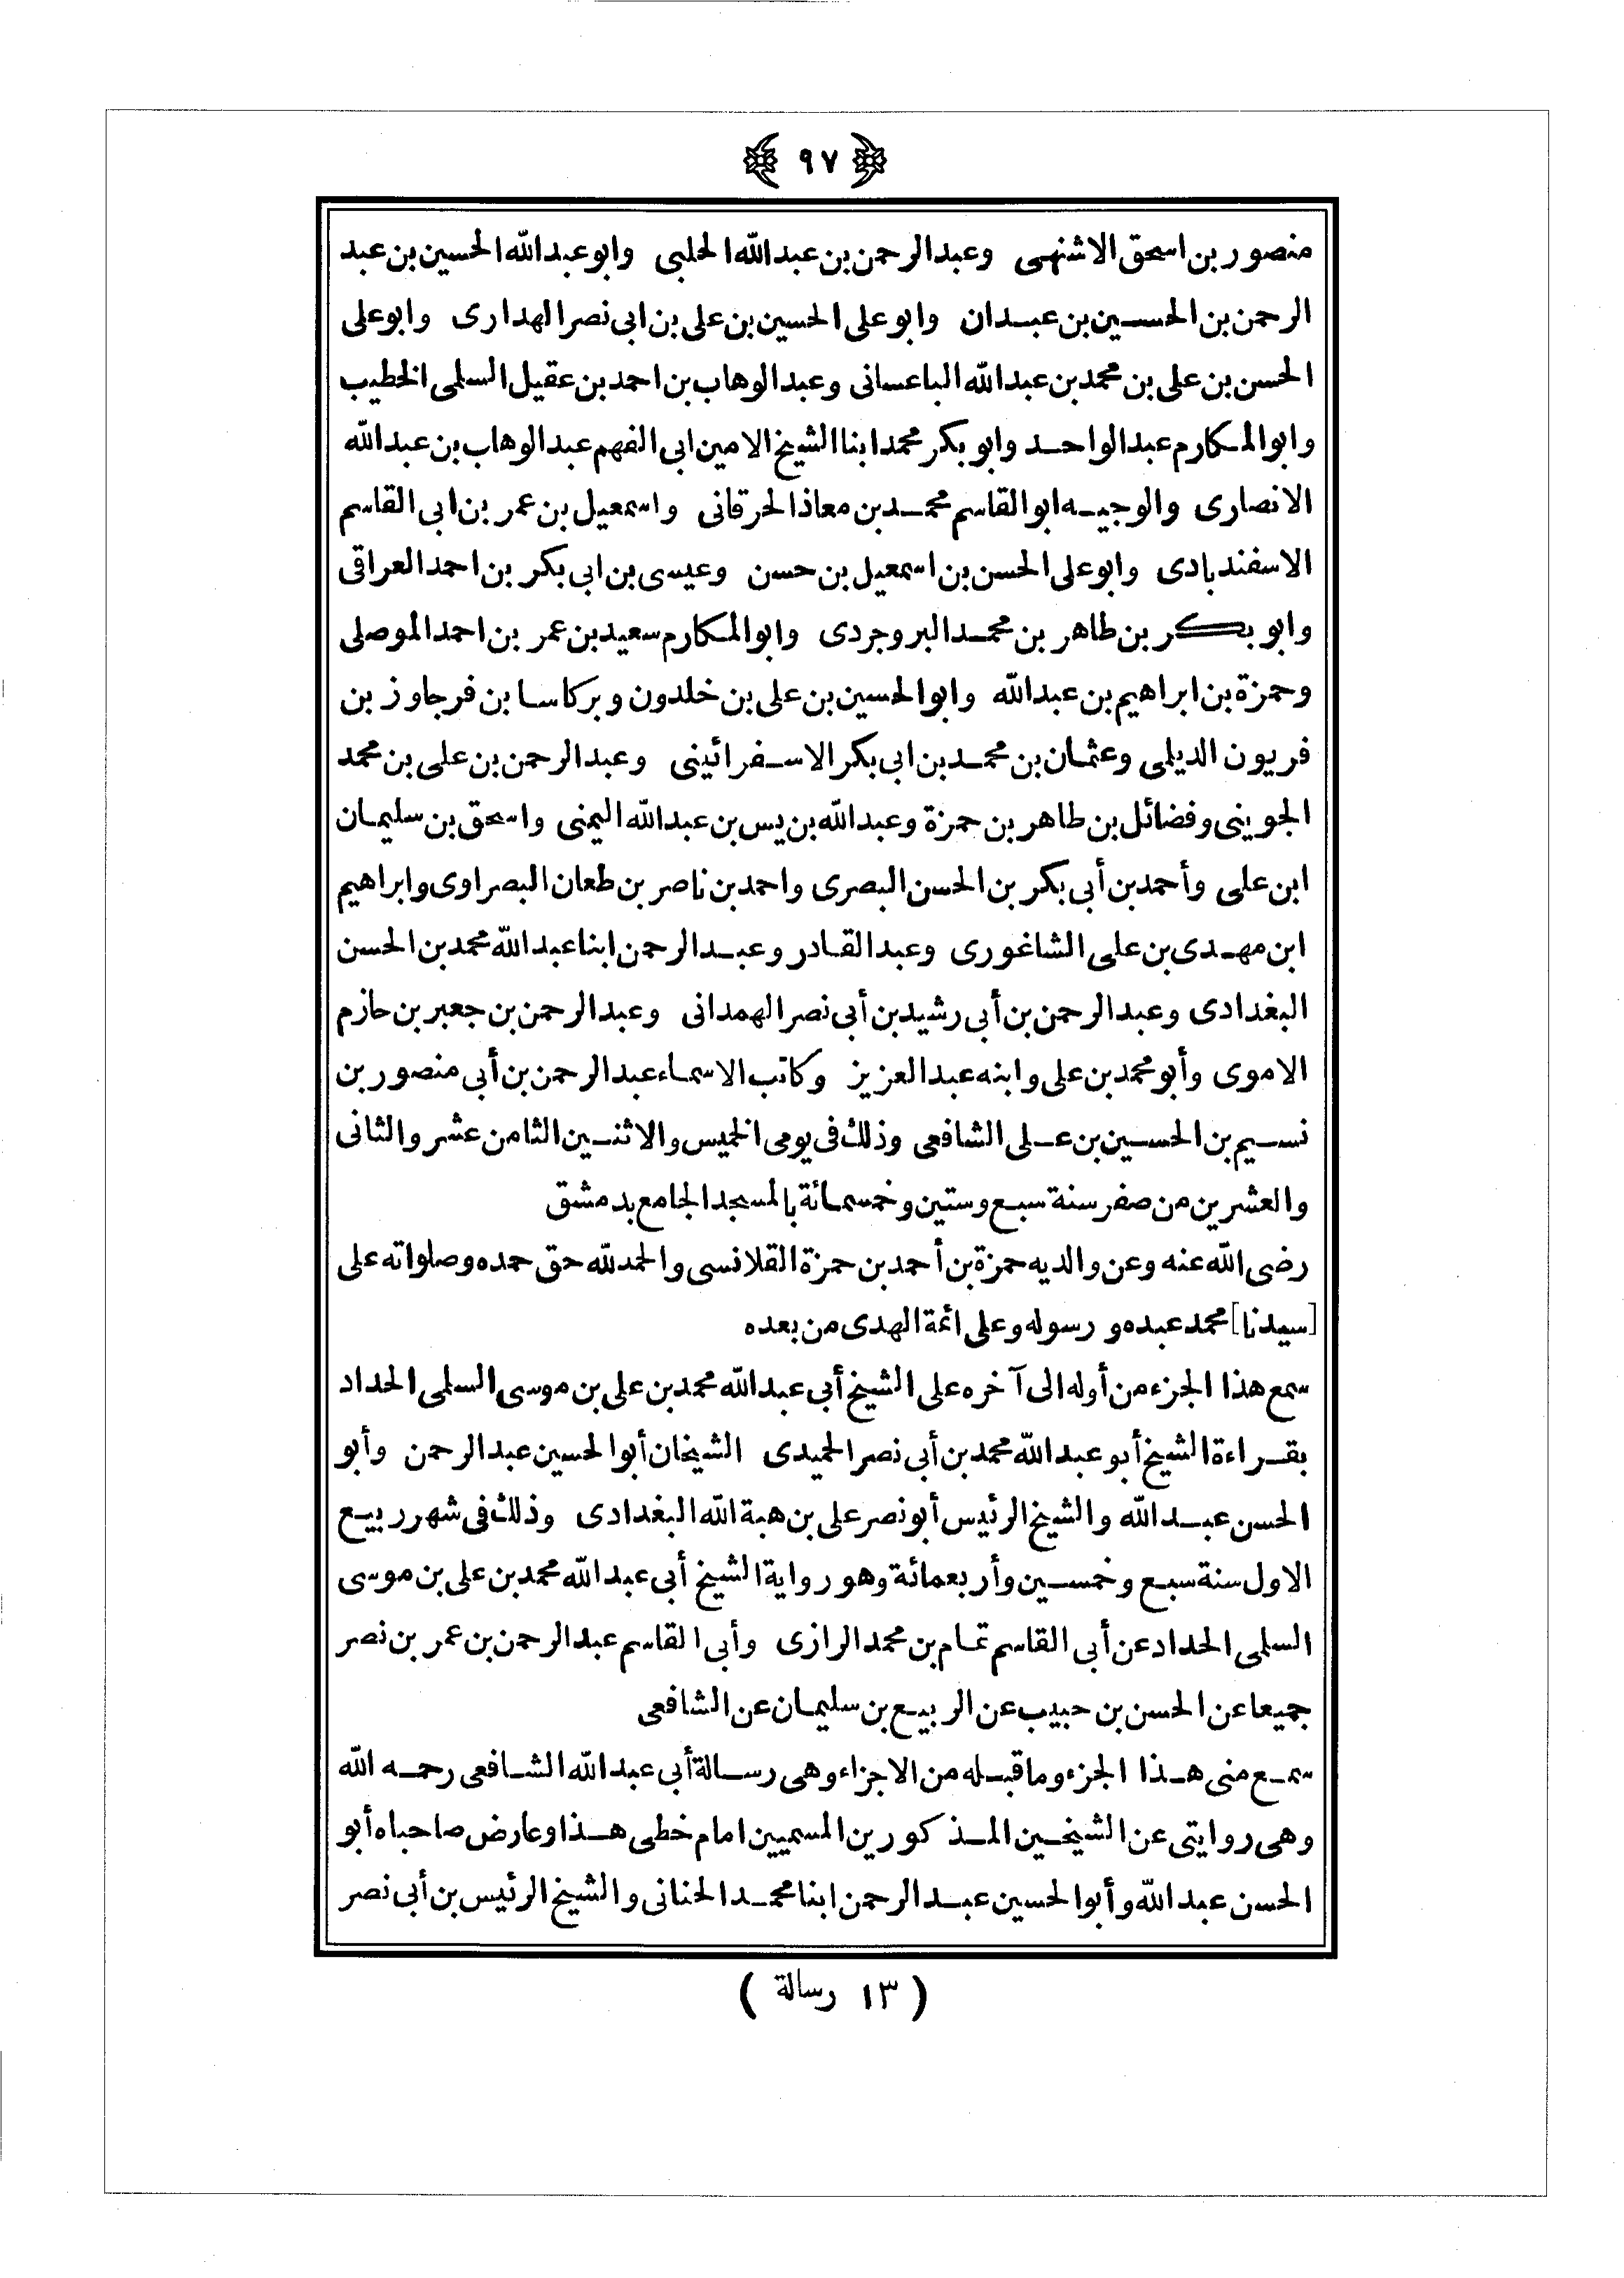 ٩٧
منصور بن اسحق الاشنهى وعبد الرحمن بن عبد الله الحلبى وابو عبد الله الحسين بن عبد
الرحمن بن الحسين بن عبدان وابو على الحسين بن على بن ابى نصر الهدارى وابو على
الحسن بن على بن محمد بن عبد الله الباعسانى وعبد الوهاب بن احمد بن عقيل السلمى الخطيب
وابو المكارم عبد الواحد وابو بكر محمد ابنا الشيخ الامين ابى الفهم عبد الوهاب بن عبد الله
الانصارى والوجيه ابو القاسم محمد بن معاذ الحرقانى واسمعيل بن عمر بن ابى القاسم
الاسفندبادى وابو على الحسن بن اسمعيل بن حسن وعيسى بن ابى بكر بن احمد العراقى
وابو بكر بن طاهر بن محمد البروجردى وابو المكارم سعيد بن عمر بن احمد الموصلى
وحمزة بن ابراهيم بن عبد الله وابو الحسين بن على بن خلدون وبركاسا بن فرجاوز بن
فريون الديلى وعثمان بن محمد بن ابى بكر الاسفرائينى وعبد الرحمن بن على بن محمد
الجوينى وفضائل بن طاهر بن حمزة وعبد الله بن يس بن عبد الله اليمنى واسحق بن سليمان
ابن على وأحمد بن أبى بكر بن الحسن البصرى واحمد بن ناصر بن طعان البصراوى وابراهيم
ابن مهدى بن على الشاغورى وعبد القادر وعبد الرحمن ابنا عبد الله محمد بن الحسن
البغدادى وعبد الرحمن بن أبى رشيد بن أبى نصر الهمدانى وعبد الرحمن بن جعبر بن حازم
الاموى وأبو محمد بن على وابنه عبد العزيز وكاتب الاسماء عبد الرحمن بن أبى منصور بن
نسيم بن الحسين بن على الشافعى وذلك فى يومى الخميس والاثنين الثامن عشر والثانى
والعشرين من صفر سنة سبع وستين وخمسمائة بالمسجد الجامع بدمشق
رضى الله عنه وعن والديه حمزة بن أحمد بن حمزة القلانسى والحمد لله حق حمده وصلواته على
[سيدنا] محمد عبده ورسوله وعلى ائمة الهدى من بعده
سمع هذا الجزء من أوله الى آخره على الشيخ أبى عبد الله محمد بن على بن موسى السلمى الحداد
بقراءة الشيخ أبو عبد الله محمد بن أبى نصر الحميدى الشيخان أبو الحسين عبد الرحمن وأبو
الحسن عبد الله والشيخ الرئيس أبو نصر على بن هبة الله البغدادى وذلك فى شهر ربيع
الاول سنة سبع وخمسين وأربعمائة وهو رواية الشيخ أبى عبد الله محمد بن على بن موسى
السلمى الحداد عن أبى القاسم تمام بن محمد الرازى وأبى القاسم عبد الرحمن بن عمر بن نصر
جميعا عن الحسن بن حبيب عن الربيع بن سليمان عن الشافعى
سمع منى هذا الجزء وما قبله من الاجزاء وهى رسالة أبى عبد الله الشافعى رحمه الله
وهى روايتى عن الشيخين المذكورين المسميين امام خطى هذا وعارض صاحباه أبو
الحسن عبد الله وأبو الحسين عبد الرحمن ابنا محمد الحنانى والشيخ الرئيس بن أبى نصر
( ١٣ رسالة )